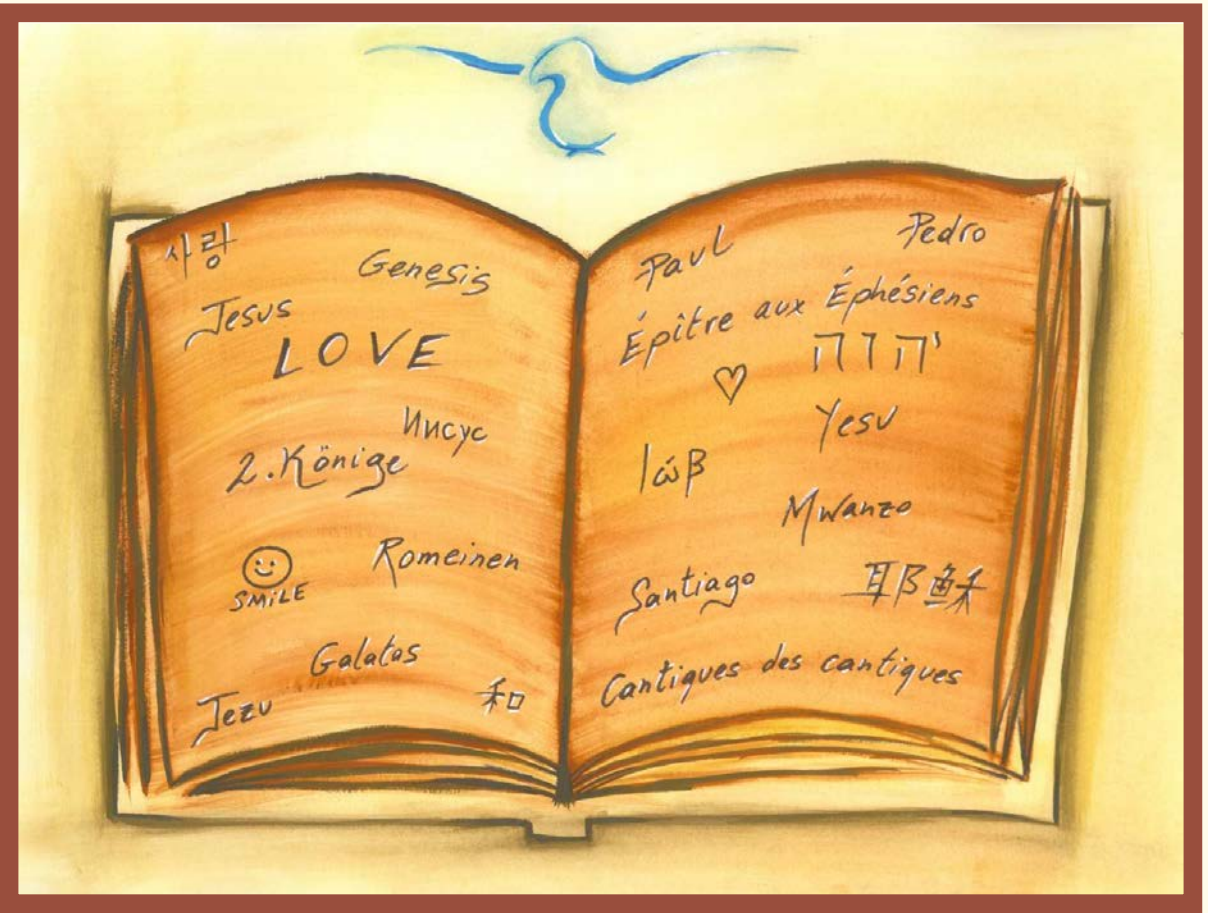 사랑
Genesis
Jesus
LOVE
Иисус
2. Könige
SMiLE
Romeinen
Galatas
Jezu
和
Paul
Pedro
Épître aux Éphésiens
יהוה
Yesu
Ιώβ
Mwanzo
Santiago
耶穌
Cantiques des cantiques